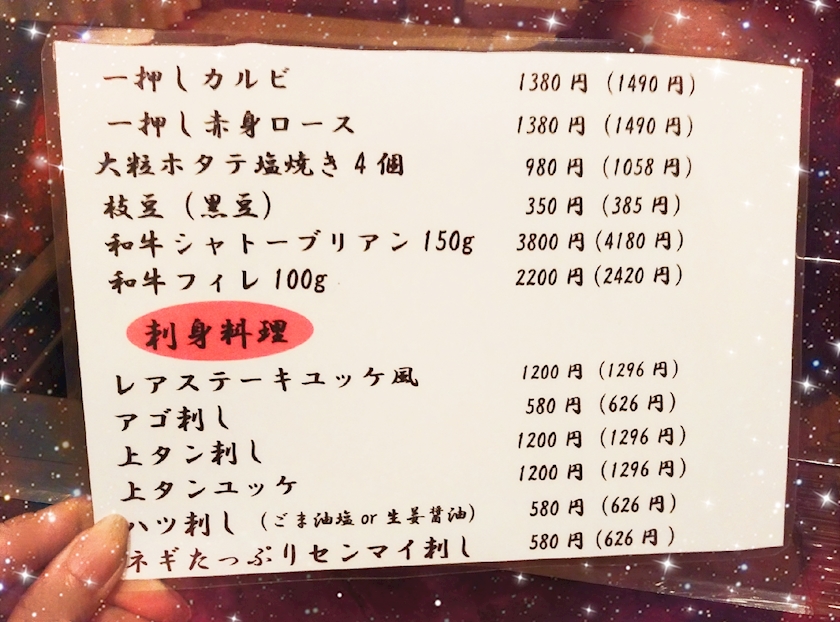 一押しカルビ 1380円 (1490円)
一押し赤身ロース 1380円 (1490円)
大粒ホタテ塩焼き4個 980円 (1058円)
枝豆(黒豆) 350円 (385円)
和牛シャトーブリアン150g 3800円(4180円)
和牛フィレ100g 2200円(2420円)
刺身料理
レアステーキユッケ風 1200円 (1296円)
アゴ刺し 580円 (626円)
上タン刺し 1200円 (1296円)
上タンユッケ 1200円 (1296円)
ハツ刺し (ごま油塩or生姜醤油) 580円 (626円)
ネギたっぷりセンマイ刺し 580円(626円)